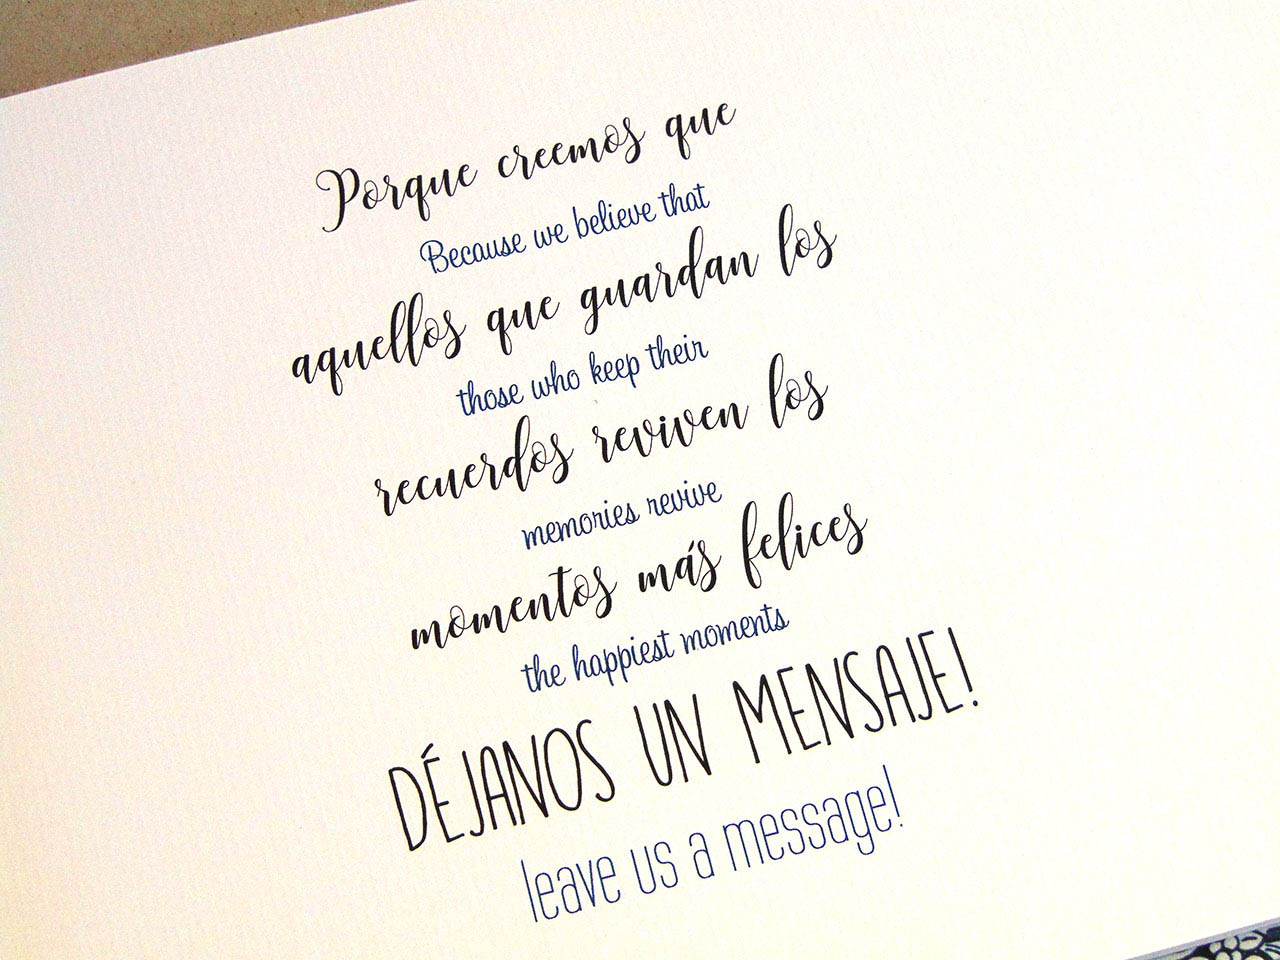 Porque creemos que
Because we believe that
aquellos que guardan los
those who keep their
recuerdos reviven los
memories revive
momentos más felices
the happiest moments
DÉJANOS UN MENSAJE!
leave us a message!